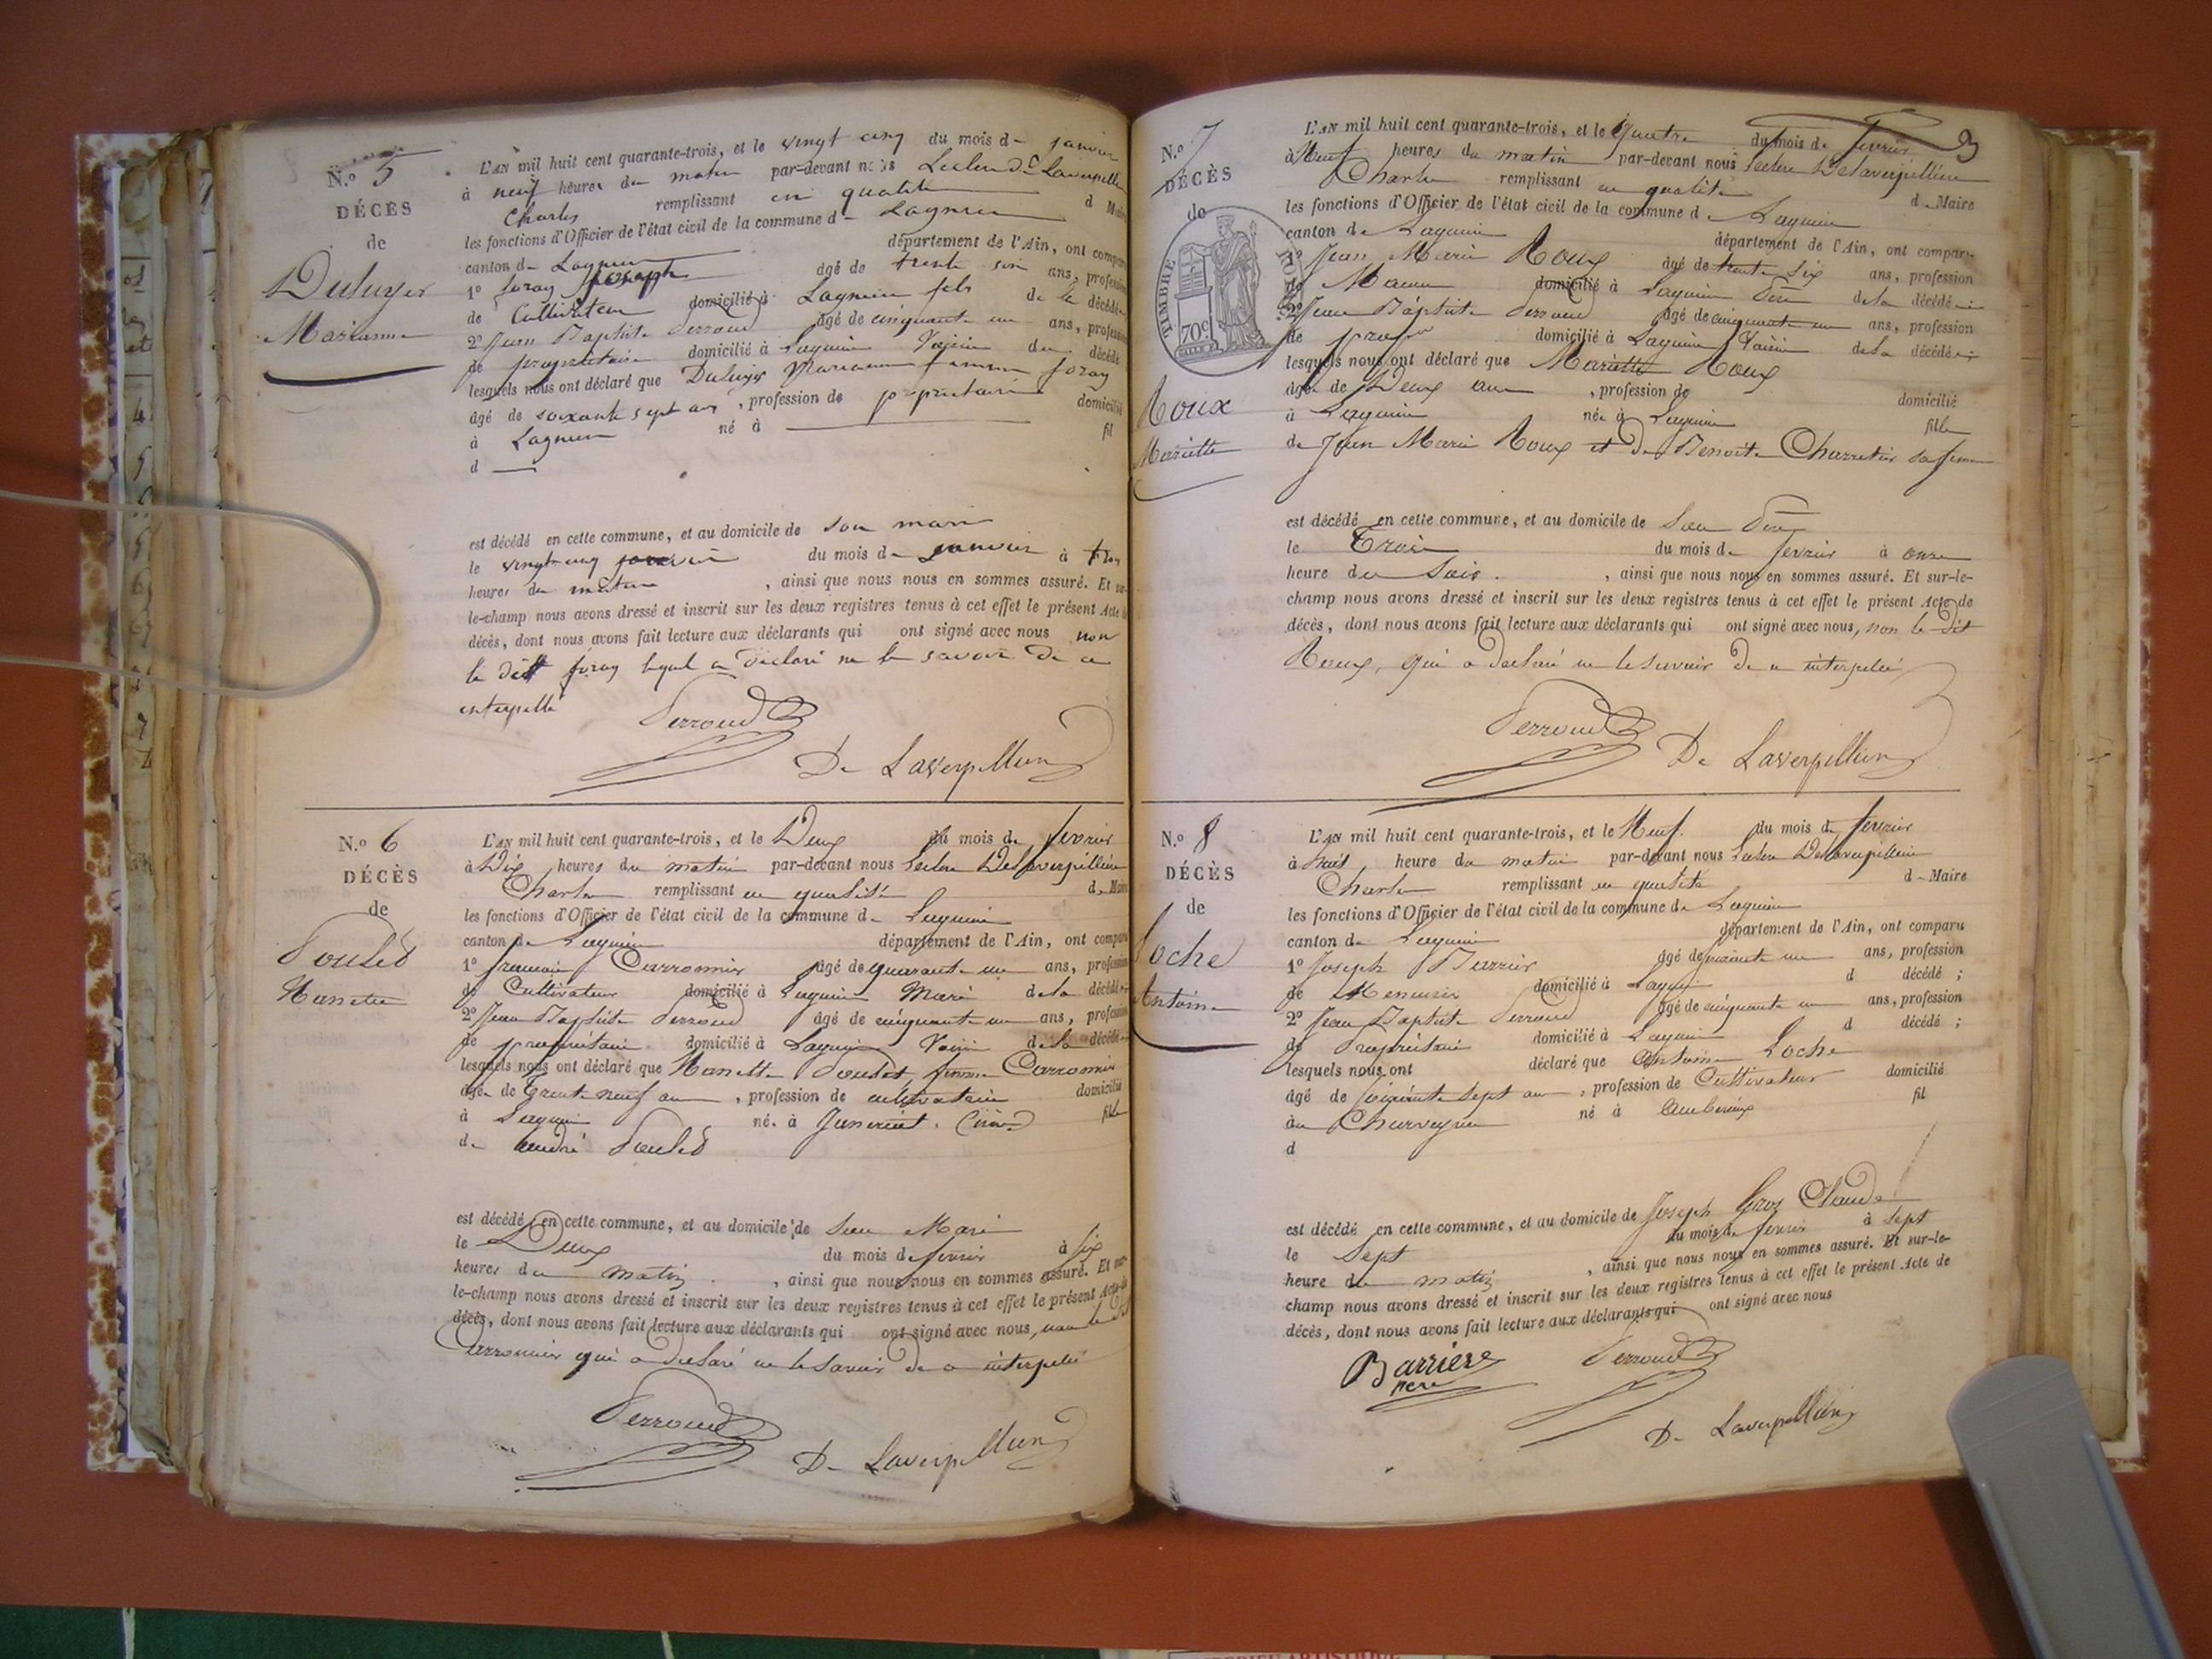 N.o 5
DÉCÈS
de
Duluyer
Marianne
L'AN mil huit cent quarante-trois, et le vingt cinq du mois de janvier
à neuf heures du matin par-devant nous Leclerc De Laverpillière
Charles remplissant en qualité d Maire
les fonctions d'Officier de l'état civil de la commune de Lagnieu
canton de Lagnieu département de l'Ain, ont comparu
1o foray joseph agé de trente six ans, profession
de Cultivateur domicilié à Lagnieu fils de la décédée
2o Jean Baptiste Perroud agé de cinquante un ans, profession
de propriétaire domicilié à Lagnieu Voisin du décédé
lesquels nous ont déclaré que Duluyer Marianne femme foray
agé de soixante sept ans, profession de propriétaire domicilié
à Lagnieu né à fil
d
est décédé en cette commune, et au domicile de son mari
le vingt cinq janvier du mois de janvier à
heures du matin, ainsi que nous nous en sommes assuré. Et sur-
le-champ nous avons dressé et inscrit sur les deux registres tenus à cet effet le présent Acte de
décès, dont nous avons fait lecture aux déclarants qui ont signé avec nous non
le dit foray lequel a déclaré ne le savoir de ce
interpellé
Perroud
De Laverpillière
N.o 6
DÉCÈS
de
Poulet
Nanette
L'AN mil huit cent quarante-trois, et le Deux du mois de fevrier
à Dix heures du matin par-devant nous Leclerc Delaverpillière
Charles remplissant en qualité de Maire
les fonctions d'Officier de l'état civil de la commune de Lagnieu
canton de Lagnieu département de l'Ain, ont comparu
1o francois Carronnier agé de quarante un ans, profession
de Cultivateur domicilié à Lagnieu Mari de la décédée
2o Jean Baptiste Perroud agé de cinquante un ans, profession
de propriétaire domicilié à Lagnieu Voisin de la décédée
lesquels nous ont déclaré que Nanette Poulet femme Carronnier
agée de Trente neuf ans, profession de cultivatrice domicilié
à Lagnieu née à fille
de André Poulet
est décédé en cette commune, et au domicile de Son Mari
le Deux du mois de fevrier à six
heures du matin, ainsi que nous nous en sommes assuré. Et sur-
le-champ nous avons dressé et inscrit sur les deux registres tenus à cet effet le présent Acte de
décès, dont nous avons fait lecture aux déclarants qui ont signé avec nous, non le dit
Carronnier qui a déclaré ne le savoir de ce interpellé
Perroud
De Laverpillière
3
N.o 7
DÉCÈS
de
TIMBRE ROYAL
70c
Roux
Mariette
L'AN mil huit cent quarante-trois, et le Quatre du mois de fevrier
à Neuf heures du matin par-devant nous Leclerc Delaverpillière
Charles remplissant en qualité d Maire
les fonctions d'Officier de l'état civil de la commune de Lagnieu
canton de Lagnieu département de l'Ain, ont comparu
1o Jean Marie Roux agé de trente six ans, profession
de Macon domicilié à Lagnieu Père de la décédée
2o Jean Baptiste Perroud agé de cinquante un ans, profession
de propre domicilié à Lagnieu Voisin de la décédée;
lesquels nous ont déclaré que Mariette Roux
agée de Deux ans, profession de domicilié
à Lagnieu née à Lagnieu fille
de Jean Marie Roux et de Benoite Charretier sa femme
est décédé en cette commune, et au domicile de Son Père
le Trois du mois de fevrier à onze
heure du Soir., ainsi que nous nous en sommes assuré. Et sur-le-
champ nous avons dressé et inscrit sur les deux registres tenus à cet effet le présent Acte de
décès, dont nous avons fait lecture aux déclarants qui ont signé avec nous, non le dit
Roux, qui a déclaré ne le savoir de ce interpellé
Perroud
De Laverpillière
N.o 8
DÉCÈS
de
Loche
Antoine
L'AN mil huit cent quarante-trois, et le Neuf. du mois de fevrier
à huit heure du matin par-devant nous Leclerc Delaverpillière
Charles remplissant en qualité de Maire
les fonctions d'Officier de l'état civil de la commune de Lagnieu
canton de Lagnieu département de l'Ain, ont comparu
1o Joseph Barrier agé de ans, profession
de Menuisier domicilié à Lagnieu d décédé;
2o Jean Baptiste Perroud agé de cinquante un ans, profession
de Propriétaire domicilié à Lagnieu d décédé;
lesquels nous ont déclaré que Antoine Loche
agé de sept ans, profession de Cultivateur domicilié
au né à Ambérieux fil
d
est décédé en cette commune, et au domicile de Joseph Gros Claude
le Sept du mois de fevrier à sept
heure du matin, ainsi que nous nous en sommes assuré. Et sur-le-
champ nous avons dressé et inscrit sur les deux registres tenus à cet effet le présent Acte de
décès, dont nous avons fait lecture aux déclarants qui ont signé avec nous
Barriere
Pere
Perroud
De Laverpillière